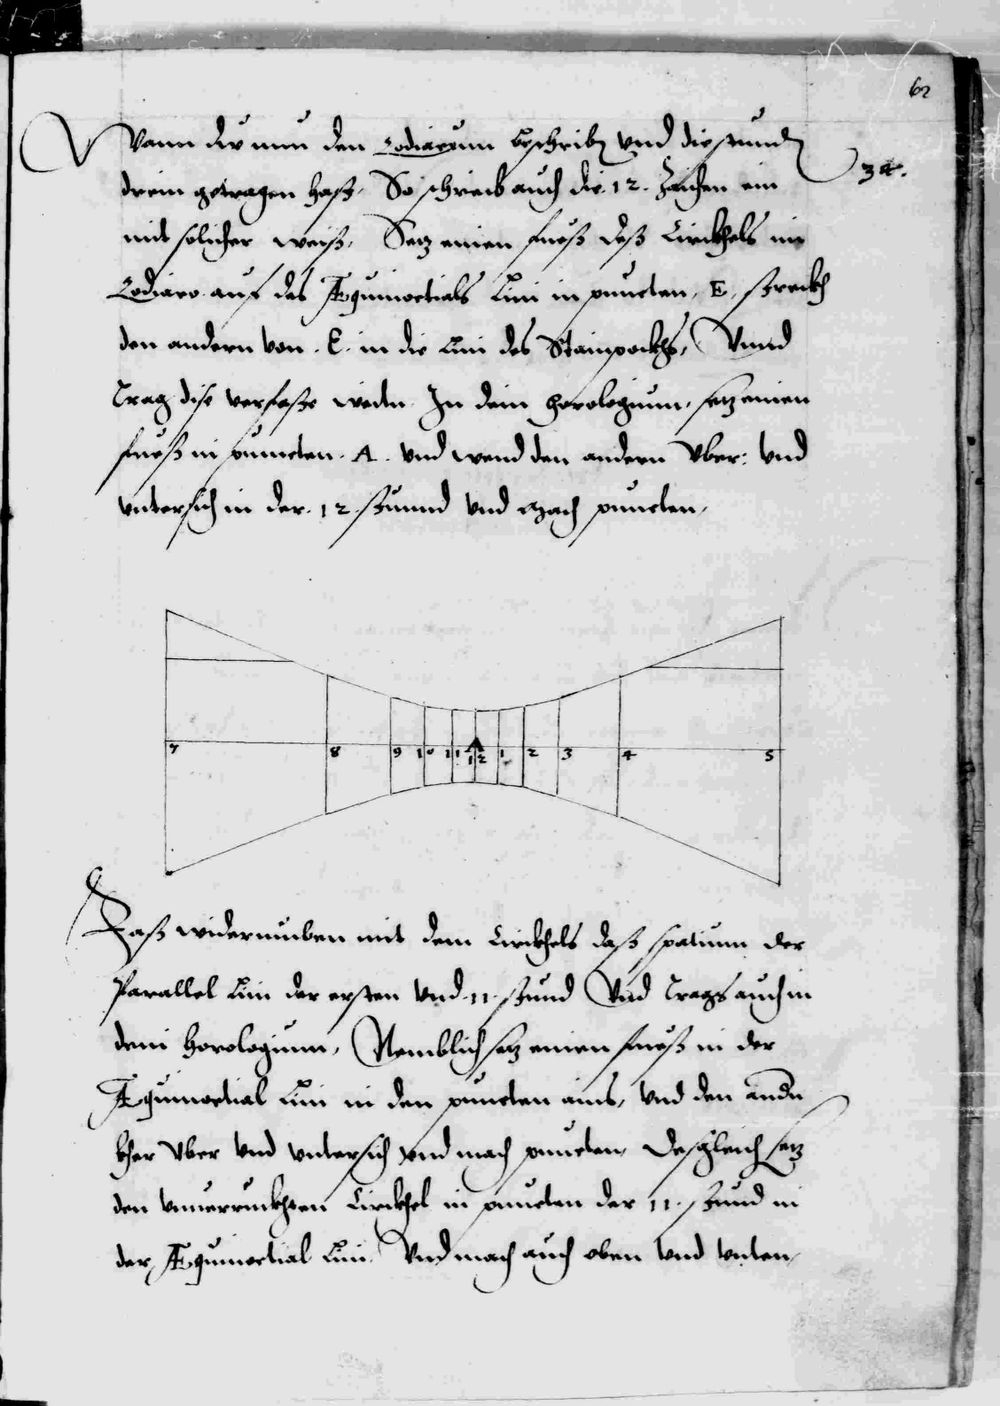 62
Wann du nun den Zodiacum beschribn und die stundn
34.
drein getragen hast, So schreib auch die 12. Zaichen ein
mit solicher weiß, Setz einen fueß deß Circkhels im
Zodiaco auf des Æquinoctials Lini in puncten, E, streckh
den andern von . E. in die Lini des Stainpockhs, Vnnd
Trag dise verfaste weitn In dein horologium, setz einen
fueß in puncten . A . vnd wend den andern vber: vnd
vntersich in der . 12 . stunnd vnd mach puncten,
7 8 9 10 11 12 1 2 3 4 5
Faß widerumben mit dem Circkhels daß spatium der
Parallel Lini der ersten vnd . 11 . stund Vnd Trags auch in
dein Horologium, Nemblich setz einen fueß in der
Æquinoctial Lini in den puncten ains, vnd den andn
kher vber vnd vntersich vnd mach puncten, Desgleich setz
den vnuerruckhten Circkhel in puncten der 11. stund in
der Æquinoctial Lini, Vnd mach auch oben vnd vnten,